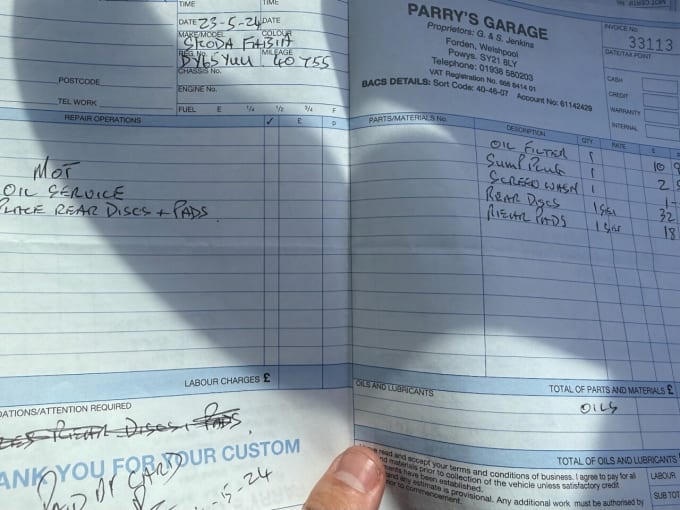 TIME TIME
DATE 23-5-24 DATE
MAKE/MODEL COLOUR
SKODA FABIA
REG. No. MILEAGE
DY65YUU 40755
CHASSIS No.
POSTCODE
ENGINE No.
TEL WORK
FUEL E 1/4 1/2 3/4 F
REPAIR OPERATIONS ✓ £ p
MOT
OIL SERVICE
PLACE REAR DISCS + PADS
LABOUR CHARGES £
DATIONS/ATTENTION REQUIRED
REAR DISCS + PADS
ANK YOU FOR YOUR CUSTOM
PAID BY CARD
-5-24
PARRY'S GARAGE
Proprietors: G. & S. Jenkins
Forden, Welshpool
Powys. SY21 8LY
Telephone: 01938 580203
VAT Registration No. 666 8414 01
BACS DETAILS: Sort Code: 40-46-07 Account No: 61142429
INVOICE No.
33113
DATE/TAX POINT
CASH
CREDIT
WARRANTY
INTERNAL
PARTS/MATERIALS No. DESCRIPTION QTY. RATE £
OIL FILTER 1 10
SUMP PLUG 1 2
SCREEN WASH 1 1-
REAR DISCS 1 SET 32
REAR PADS 1 SET 18
TOTAL OF PARTS AND MATERIALS £
OILS AND LUBRICANTS
OILS
TOTAL OF OILS AND LUBRICANTS
read and accept your terms and conditions of business. I agree to pay for all
nd materials prior to collection of the vehicle unless satisfactory credit
ments have been established.
and any estimate is provisional. Any additional work must be authorised by
ior to commencement.
LABOUR
SUB TOT